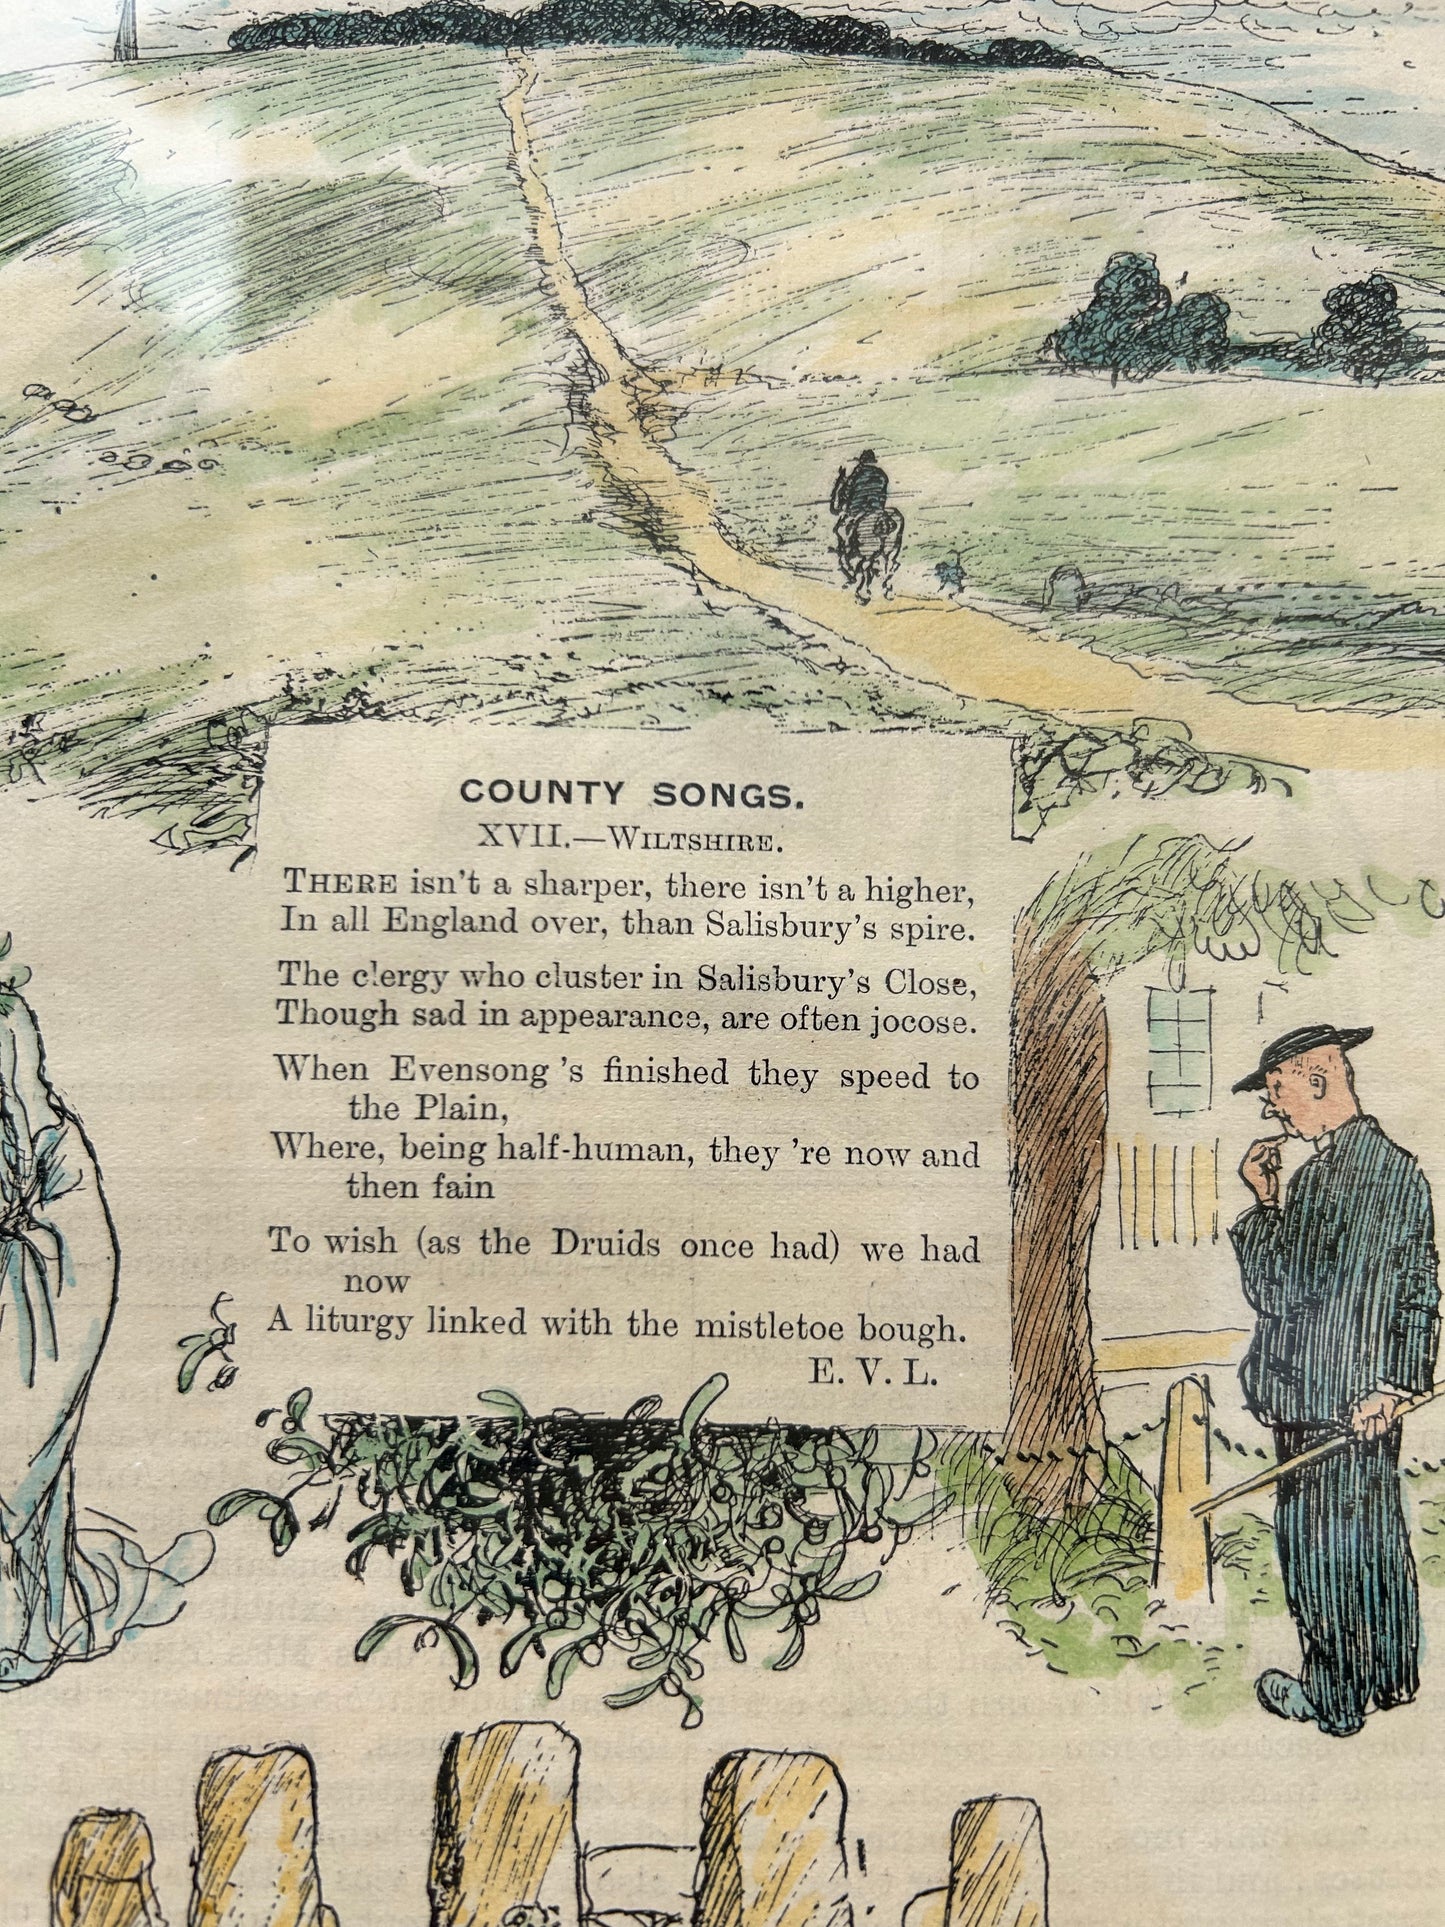 COUNTY SONGS.
XVII.—WILTSHIRE.
THERE isn't a sharper, there isn't a higher,
In all England over, than Salisbury's spire.
The clergy who cluster in Salisbury's Close,
Though sad in appearance, are often jocose.
When Evensong 's finished they speed to
the Plain,
Where, being half-human, they 're now and
then fain
To wish (as the Druids once had) we had
now
A liturgy linked with the mistletoe bough.
E. V. L.